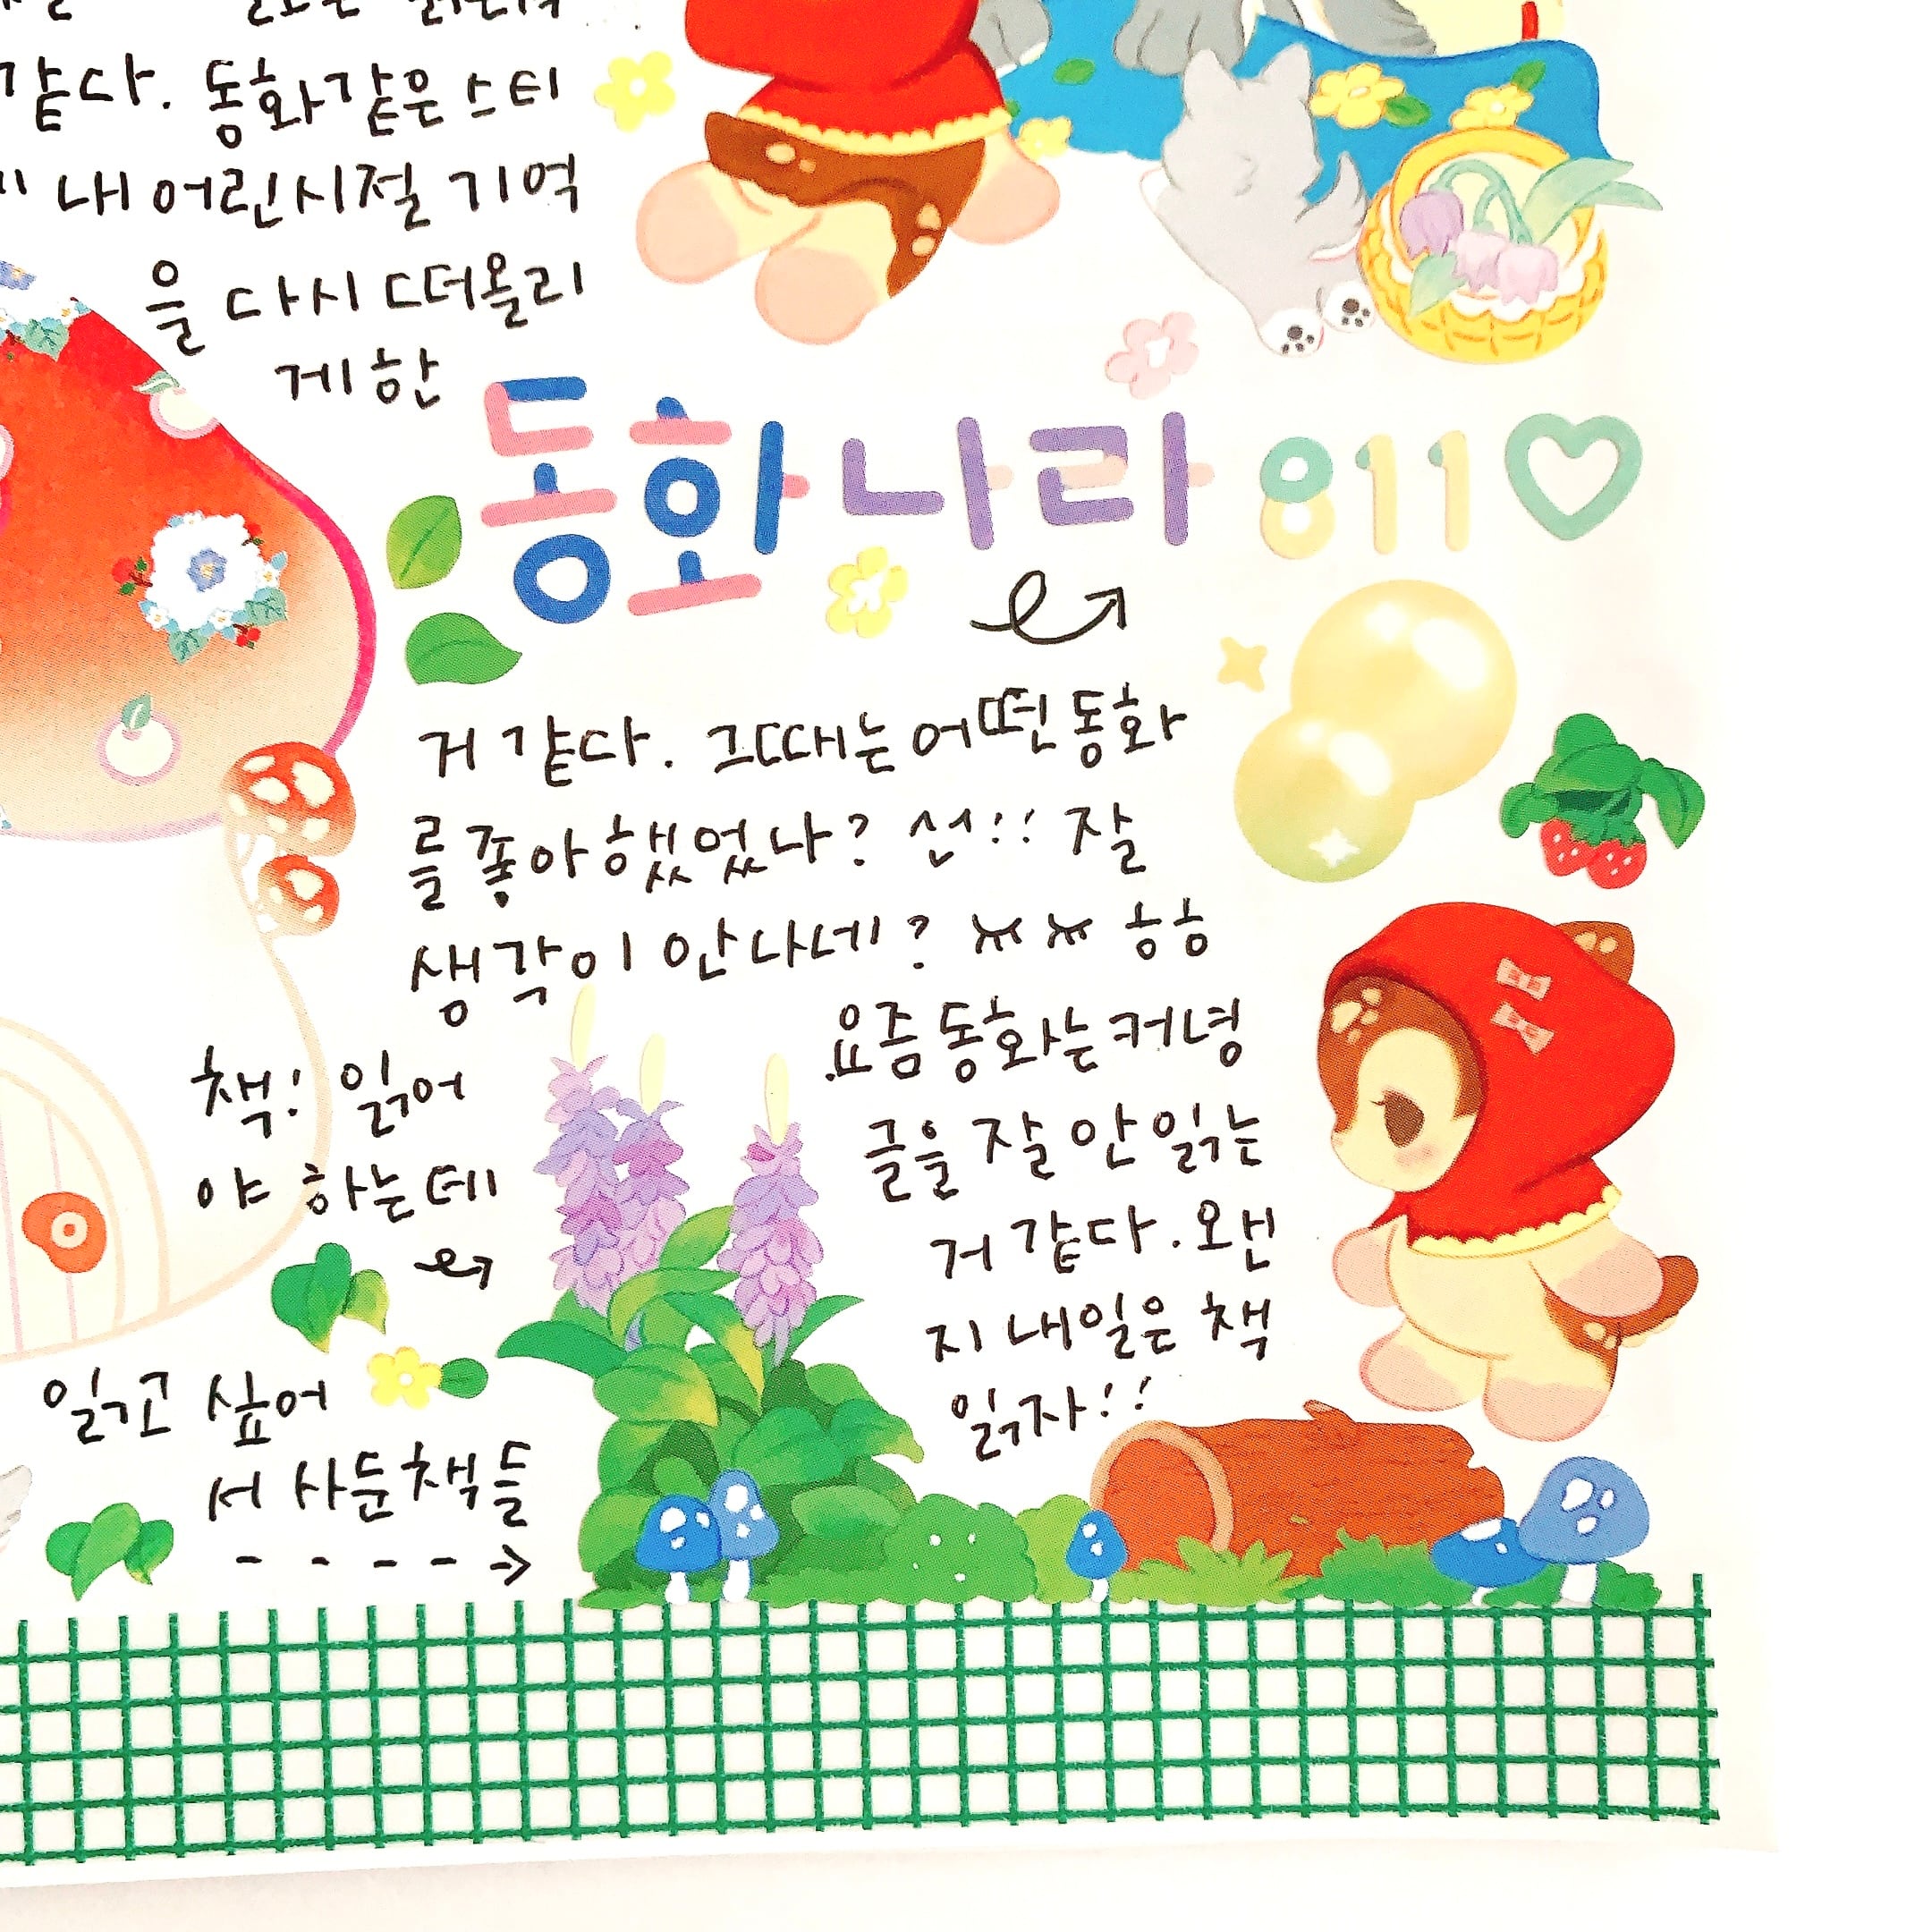 같다. 동화같은 스티
내 어린시절 기억
을 다시 떠올리
게 한
동화나라 811
거 같다. 그때는 어떤 동화
를 좋아했었나? 선!! 잘
생각이 안나네? ㅎㅎ
요즘 동화는 커녕
글을 잘 안 읽는
거 같다. 왠
지 내일은 책
읽자!!
책! 읽어
야 하는데
읽고 싶어
서 사둔 책들